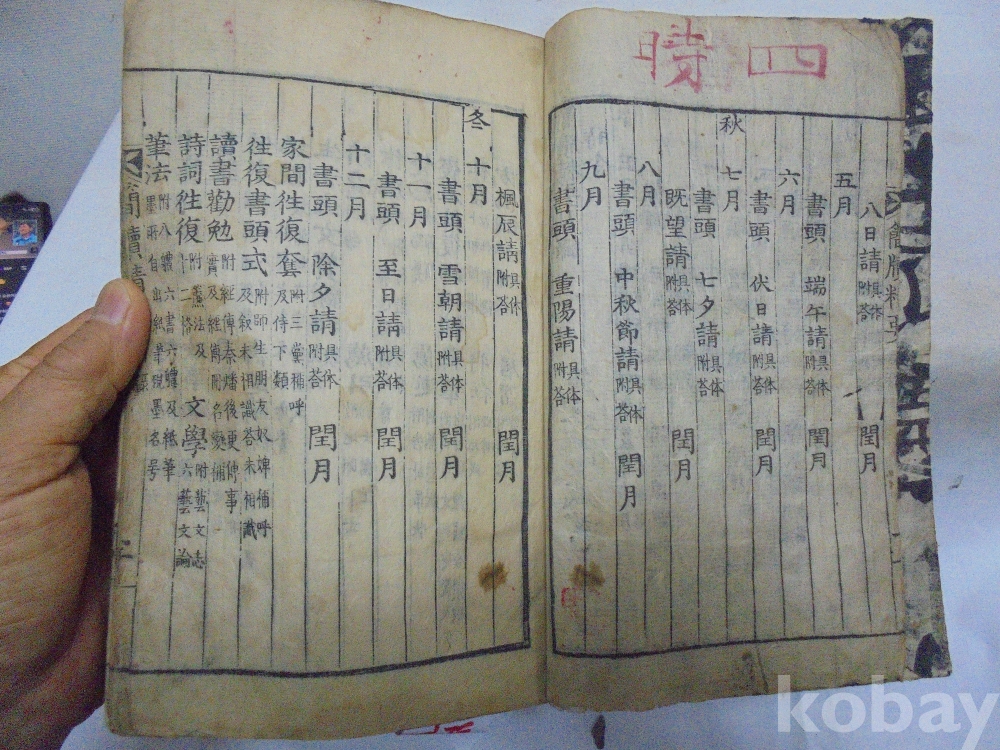 四時
八日請 附具答体 閏月
五月
書頭 端午請 附具答体 閏月
六月
書頭 伏日請 附具答体 閏月
秋 七月
書頭 七夕請 附具答体
旣望請 附具答体 閏月
八月
書頭 中秋節請 附具答体 閏月
九月
書頭 重陽請 附具答体
楓辰請 附具答体 閏月
冬 十月
書頭 雪朝請 附具答体 閏月
十一月
書頭 至日請 附具答体 閏月
十二月
書頭 除夕請 附具答体 閏月
家間徃復套 附三黨稱呼及侍下類
徃復書頭式 附師生朋友奴婢稱呼及叙未相識答未相識
讀書勸勉
詩詞徃復 文學 附藝文志六藝文論
筆法
kobay